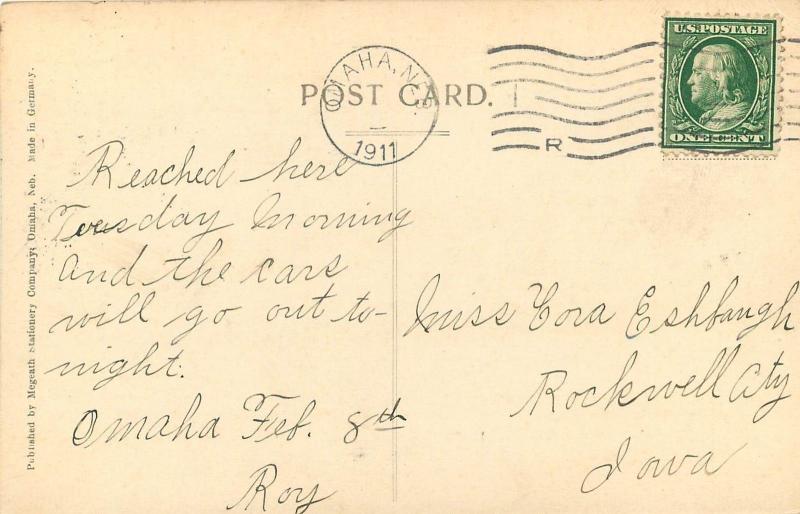 POST CARD.
OMAHA, NEB.
1911
R
U.S. POSTAGE
ONE CENT
Published by Megeath Stationery Company; Omaha, Neb. Made in Germany.
Reached here
Tuesday Morning
and the cars
will go out to-
night.
Omaha Feb. 8th
Roy
Miss Cora Eshbaugh
Rockwell City
Iowa